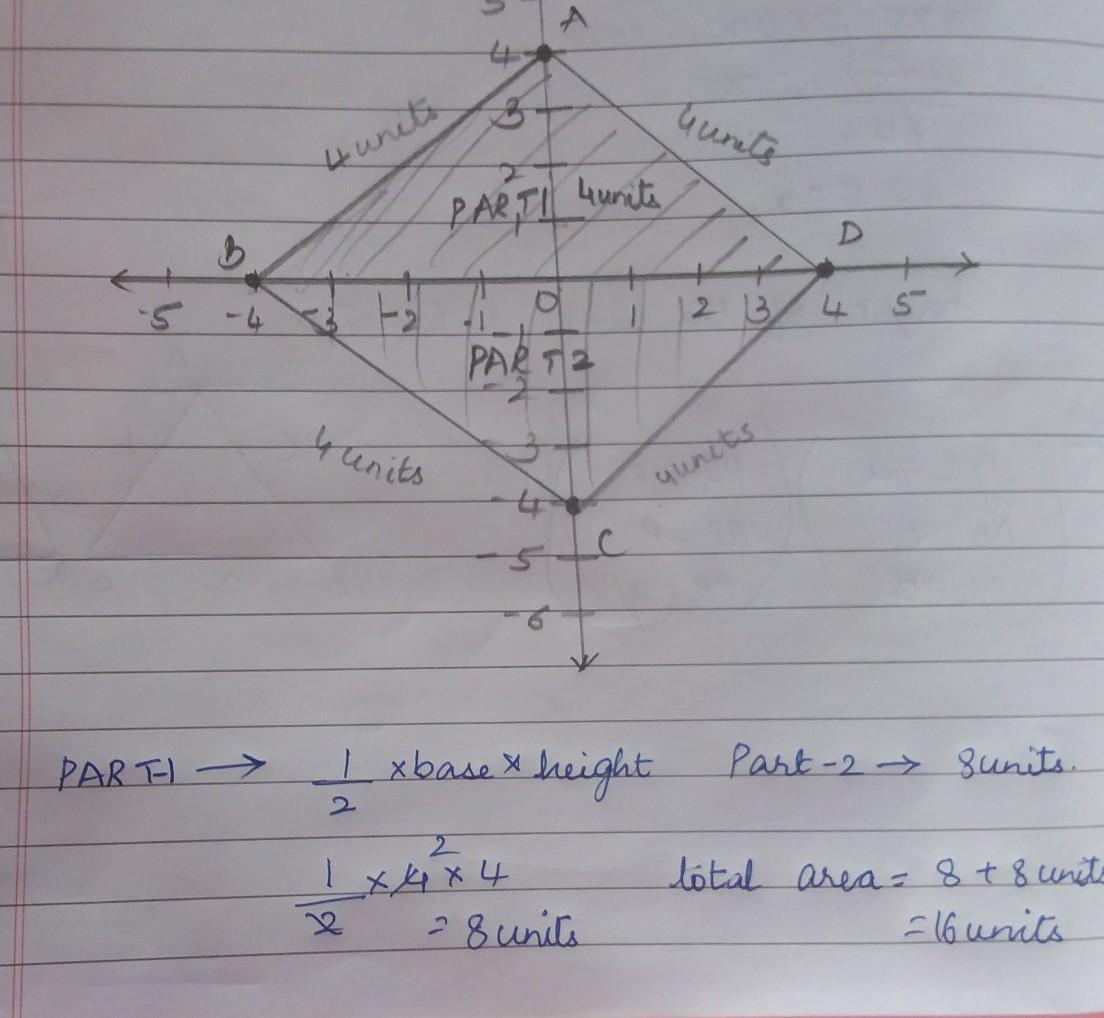 5
A
4
4 units
3
4 units
2
PART1 4 units
1
B
D
-5 -4 -3 -2 -1 0 1 2 3 4 5
-1
PART 2
-2
-3
4 units
4 units
-4
C
-5
-6
PART-1 → 1/2 × base × height Part-2 → 8 units.
1/2 × 4 2 × 4 total area = 8 + 8 units
= 8 units = 16 units